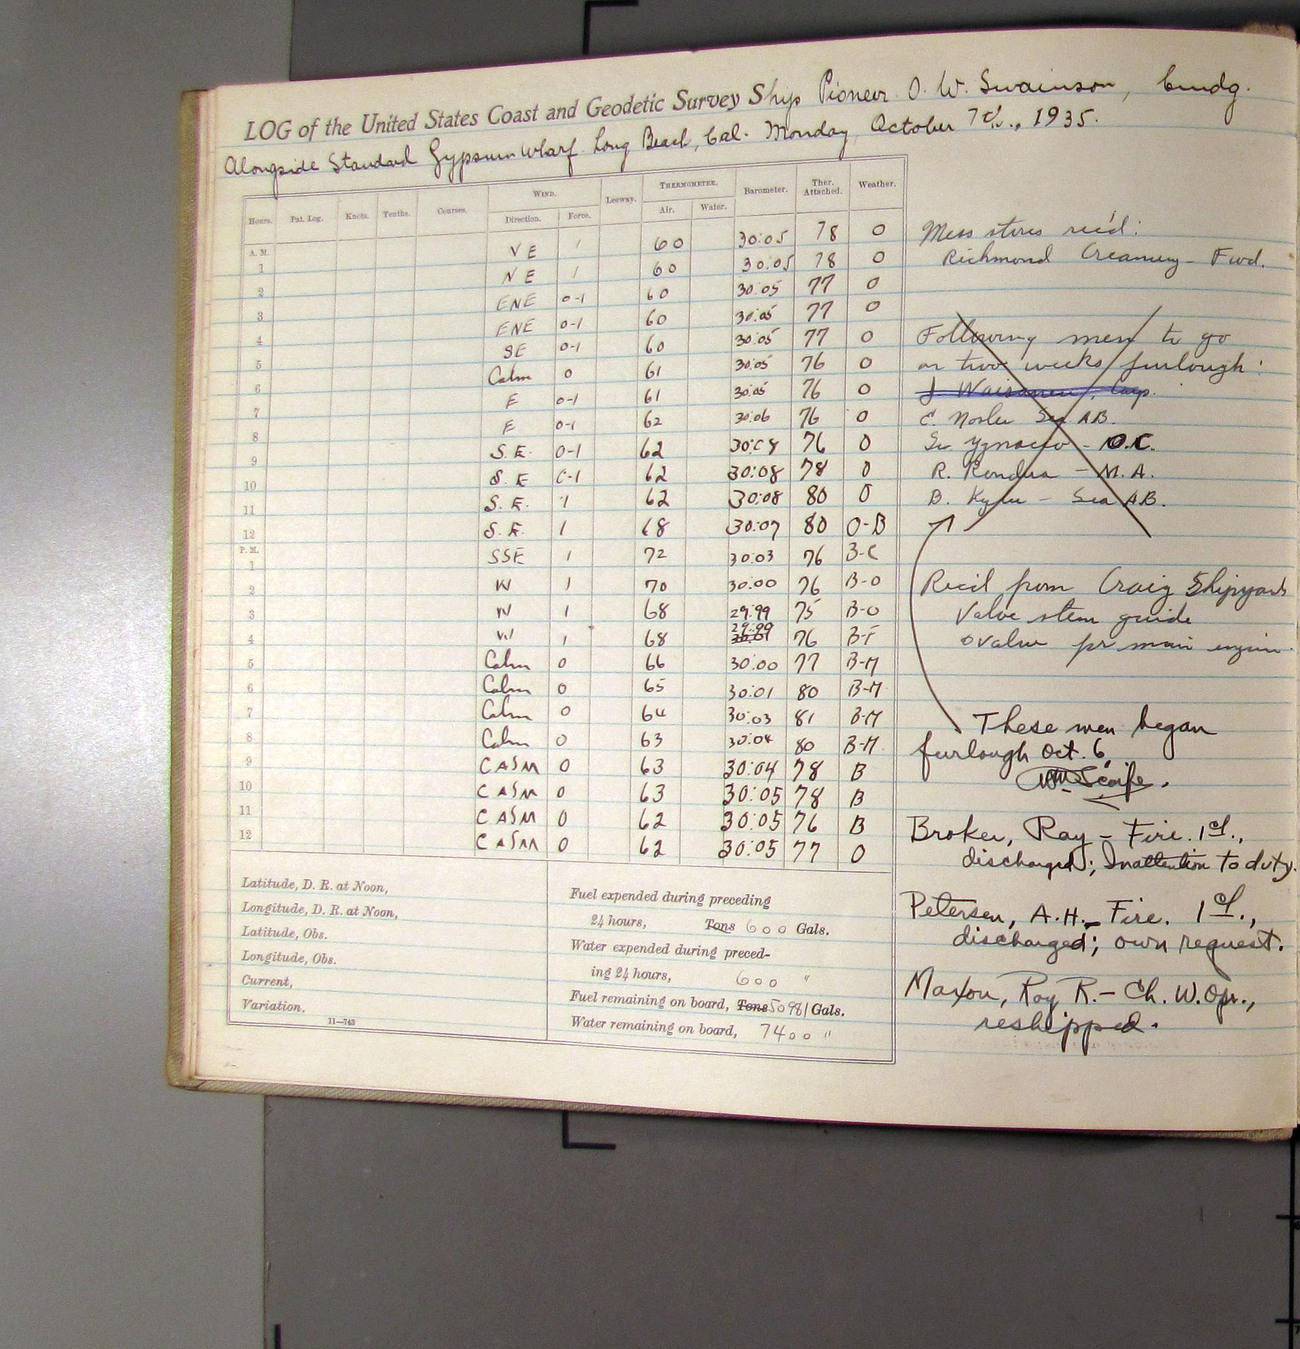 LOG of the United States Coast and Geodetic Survey Ship Pioneer O. W. Swainson, Cmdg.
Alongside Standard Gypsum Wharf Long Beach, Cal. Monday, October 7th., 1935.
Hours. Pat. Log. Knots. Tenths. Courses. WIND. Leeway. THERMOMETER. Barometer. Ther. Attached. Weather.
Direction. Force. Air. Water.
A. M.
1 NE 1 60 30.05 78 O
2 NE 1 60 30.05 78 O
3 ENE 0-1 60 30.05 77 O
4 ENE 0-1 60 30.05 77 O
5 SE 0-1 60 30.05 77 O
6 Calm 0 61 30.05 76 O
7 E 0-1 61 30.05 76 O
8 E 0-1 62 30.06 76 O
9 S.E. 0-1 62 30.08 76 O
10 S.E 0-1 62 30.08 78 O
11 S.E. 1 62 30.08 80 O
12 S.E. 1 68 30.07 80 O-B
P. M.
1 SSE 1 72 30.03 76 B-C
2 W 1 70 30.00 76 B-O
3 W 1 68 29.99 75 B-O
4 W 1 68 29.99 76 B-F
5 Calm 0 66 30.00 77 B-M
6 Calm 0 65 30.01 80 B-M
7 Calm 0 64 30.03 81 B-M
8 Calm 0 63 30.04 80 B-M
9 CALM 0 63 30.04 78 B
10 CALM 0 63 30.05 78 B
11 CALM 0 62 30.05 76 B
12 CALM 0 62 30.05 77 O
Latitude, D. R. at Noon,
Longitude, D. R. at Noon,
Latitude, Obs.
Longitude, Obs.
Current,
Variation.
11—743
Fuel expended during preceding
24 hours, Tons 600 Gals.
Water expended during preced-
ing 24 hours, 600 "
Fuel remaining on board, Tons 50981 Gals.
Water remaining on board, 7400 "
Mess stores rec'd:
Richmond Creamery - Fwd.
Following men to go
on two weeks furlough:
J. Waisanen, Carp.
E. Sea AB.
- O.C.
R. - M.A.
B. - Sea AB.
Rec'd from Craig Shipyard
Valve stem guide
valve for main engine
These men began
furlough Oct. 6,
Wm Scaife.
Broker, Ray - Fire. 1cl.,
discharged; Inattention to duty.
Petersen, A.H. - Fire. 1cl.,
discharged; own request.
Maxon, Roy R. - Ch. W. Opr.,
reshipped.